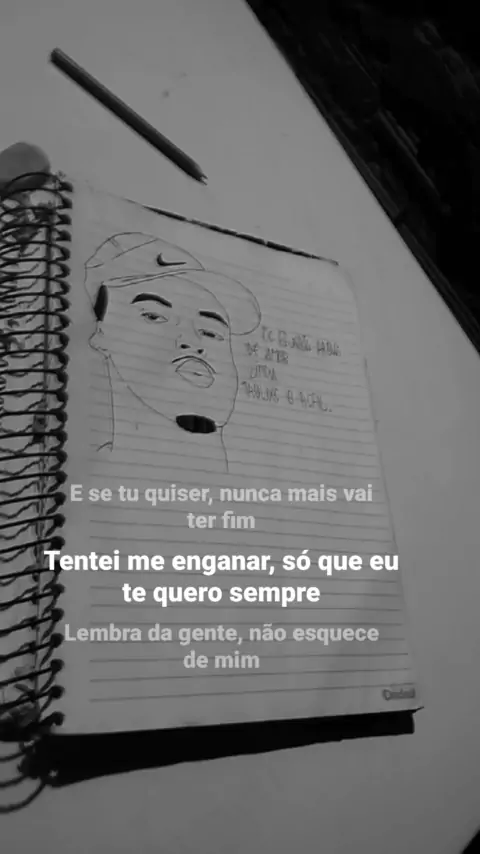 DE AMOR
E se tu quiser, nunca mais vai
ter fim
Tentei me enganar, só que eu
te quero sempre
Lembra da gente, não esquece
de mim